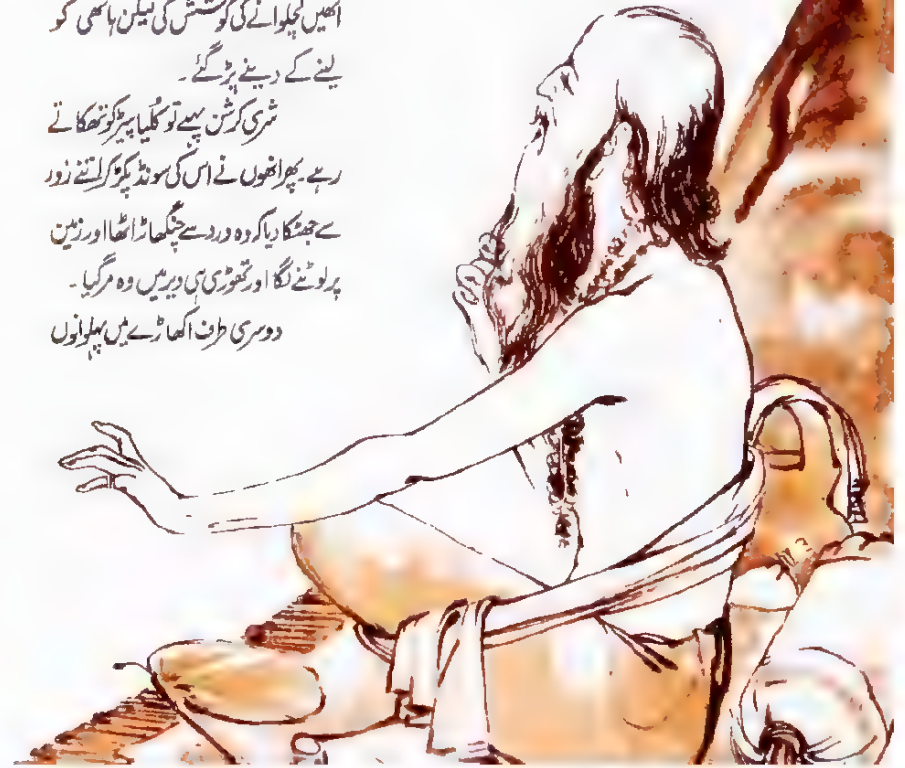 انھیں کچلوانے کی کوشش کی لیکن ہاتھی کو
لینے کے دینے پڑ گئے۔
شری کرشن پہلے تو کُلیا پیڑ کو تھکاتے
رہے۔ پھر انھوں نے اس کی سونڈ پکڑ کر اتنے زور
سے جھٹکا دیا کہ وہ درد سے چنگھاڑ اٹھا اور زمین
پر لوٹنے لگا اور تھوڑی ہی دیر میں وہ مر گیا۔
دوسری طرف اکھاڑے میں پہلوانوں